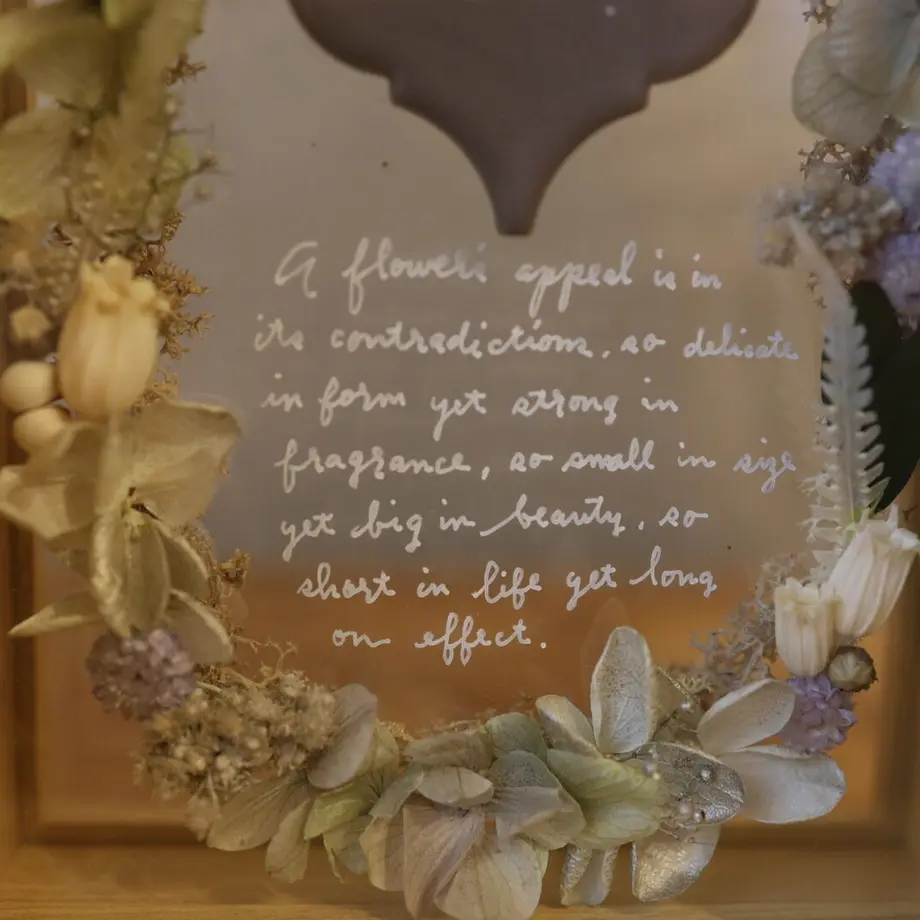 A flower's appeal is in
its contradictions, so delicate
in form yet strong in
fragrance, so small in size
yet big in beauty, so
short in life yet long
on effect.